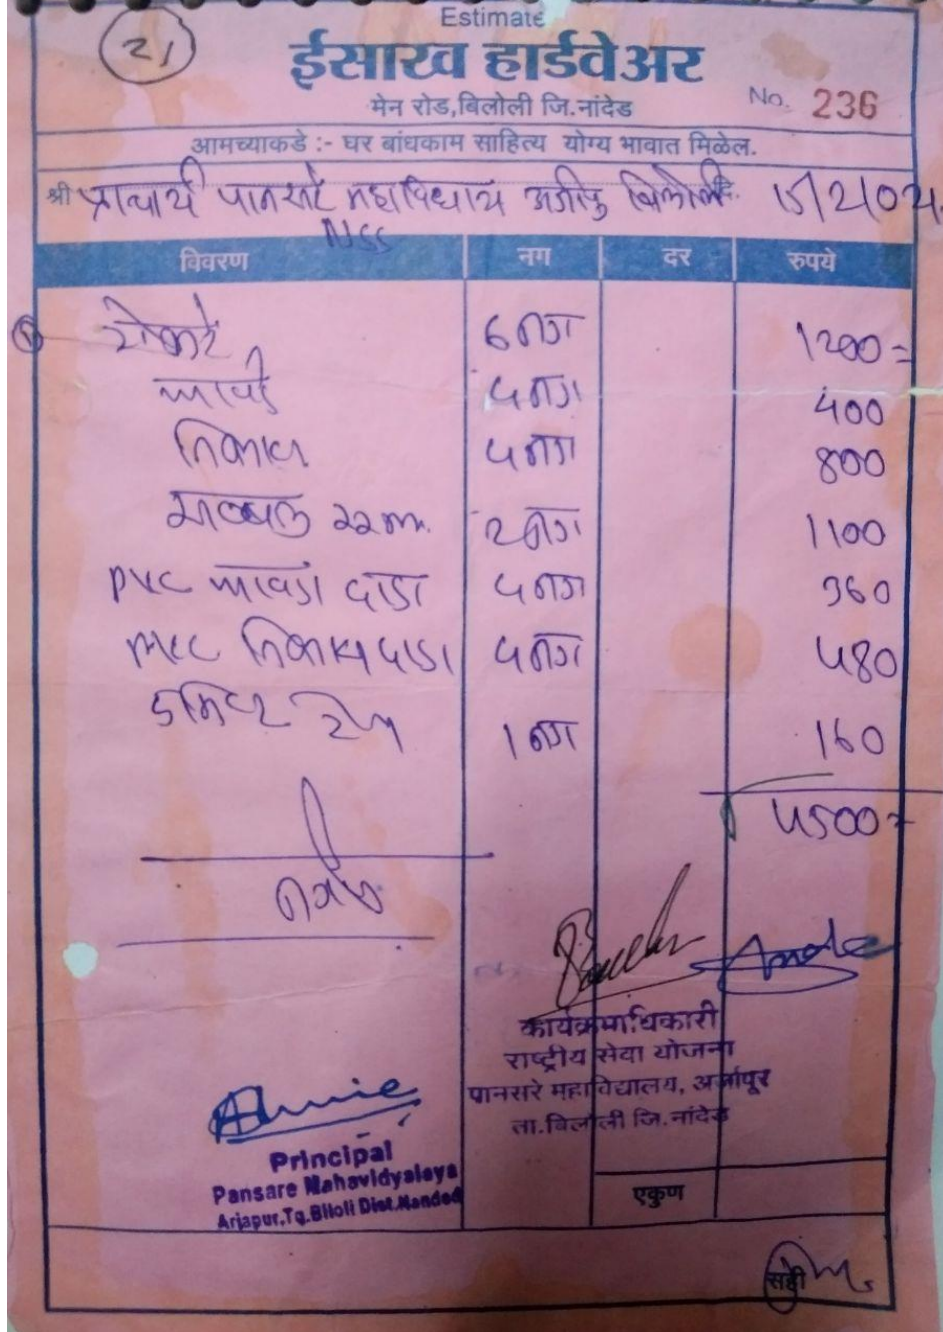 Estimate
21
ईसाख हार्डवेअर
मेन रोड,बिलोली जि.नांदेड
No. 236
आमच्याकडे :- घर बांधकाम साहित्य योग्य भावात मिळेल.
श्री प्राचार्य पानसरे महाविद्यालय अर्जापुर बिलोली दि. 15/2/021
NSS
विवरण नग दर रुपये
टोकरे 6 नग 1200=
खावडे ५ नग 400
तिकाव ५ नग 800
सब्बल २२mm. 2 नग 1100
PVC खावडा दांडा ५ नग 360
PVC तिकाव दांडा ५ नग ४80
५ मिटर टेप 1 नग 160
४500=
कार्यक्रमाधिकारी
राष्ट्रीय सेवा योजना
पानसरे महाविद्यालय, अर्जापूर
ता.बिलोली जि.नांदेड
Principal
Pansare Mahavidyalaya
Arjapur,Tq.Biloli Dist.Nanded
एकुण
सही